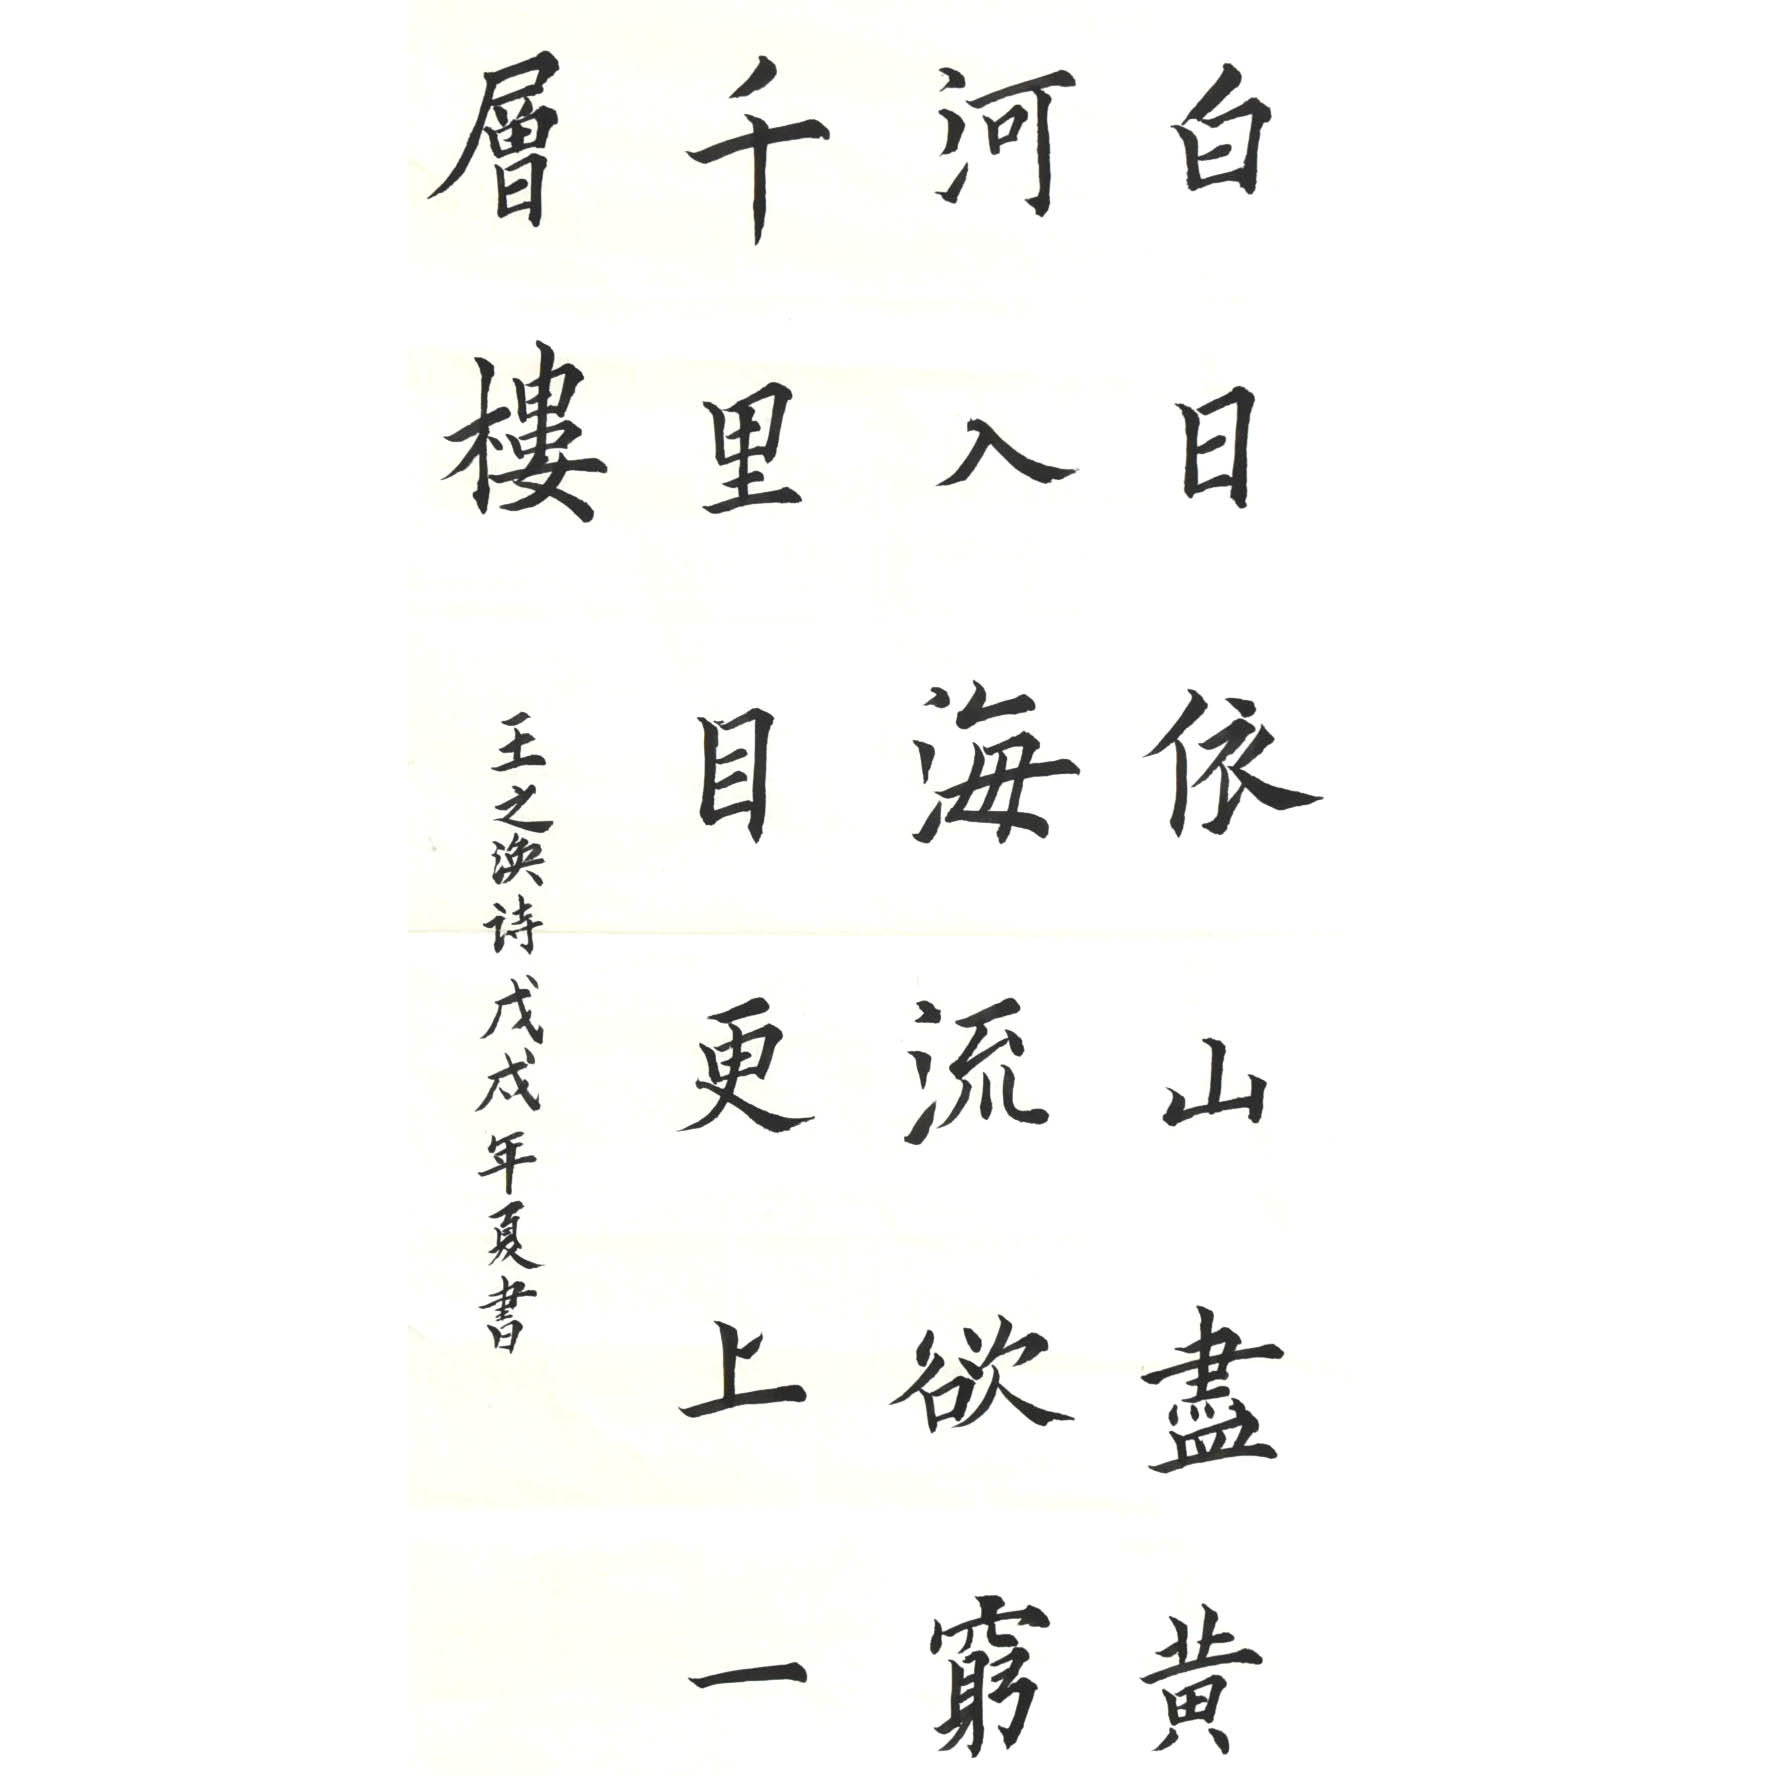 白日依山盡黄
河入海流欲窮
千里目更上一
層樓
王之涣诗 戊戌年夏書